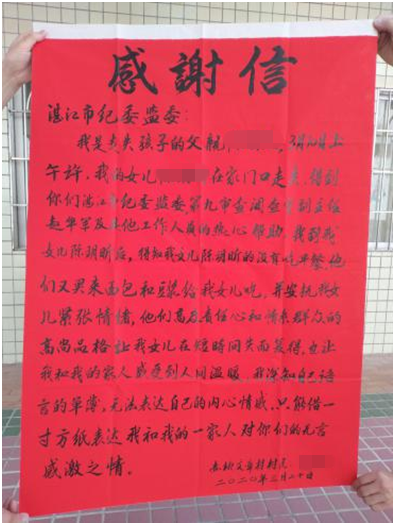 感謝信
湛江市纪委监委：
我是走失孩子的父親，3月20日上
午许，我的女儿在家门口走失，得到
你们湛江市纪委监委第九审查调查室副主任
赵华军及其他工作人员的热心帮助，找到我
女儿陈玥昕后，得知我女儿陈玥昕的没有吃早餐，他
们又买来面包和豆浆给我女儿吃，并安抚我女
儿紧张情绪，他们高度责任心和情系群众的
高尚品格让我女儿在短时间失而复得，也让
我和我的家人感受到人间温暖，我深知自己语
言的单薄，无法表达自己的内心情感，只能借一
寸方纸表达我和我的一家人对你们的无言
感激之情。
赤坎文章村村民：
二〇二〇年三月二十日